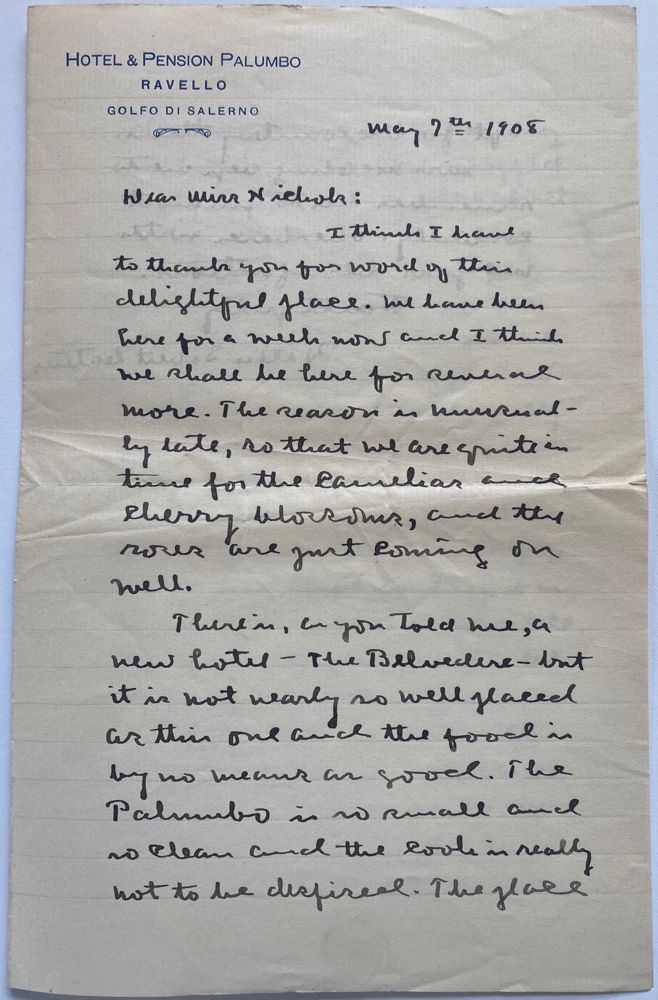 HOTEL & PENSION PALUMBO
RAVELLO
GOLFO DI SALERNO
May 7th 1908
Dear Miss Nichols:
I think I have
to thank you for word of this
delightful place. We have been
here for a week now and I think
we shall be here for several
more. The season is unusual-
ly late, so that we are quite in
time for the Camelias and
Cherry blossoms, and the
roses are just coming on
well.
There is, as you told me, a
new hotel - The Belvedere - but
it is not nearly so well placed
as this one and the food is
by no means as good. The
Palumbo is so small and
so clean and the cook is really
not to be despised. The place